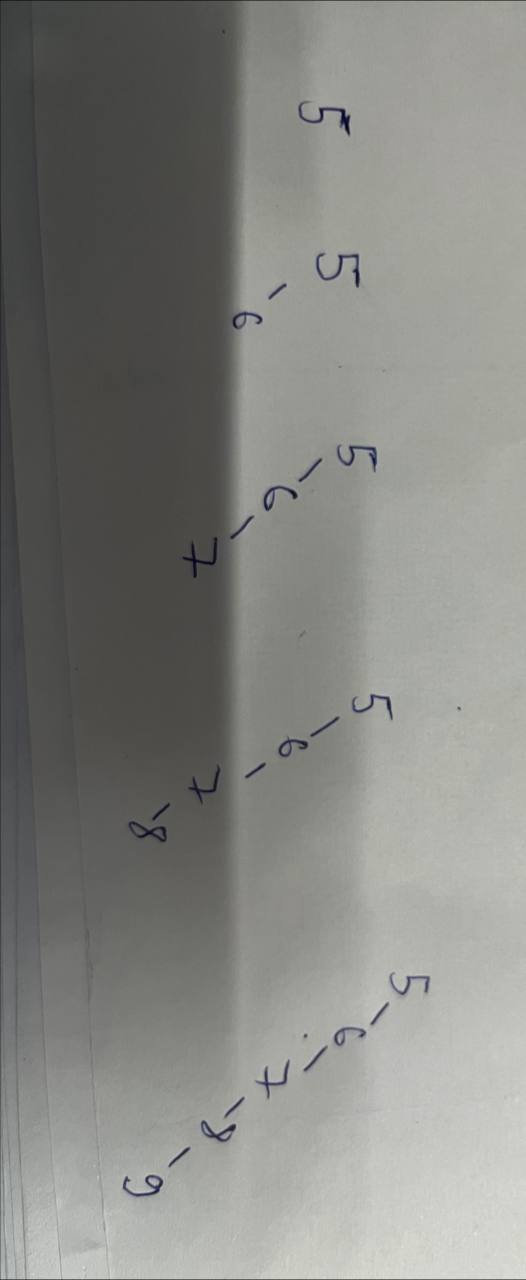 5
5 - 6
5 - 6 - 7
5 - 6 - 7 - 8
5 - 6 - 7 - 8 - 9